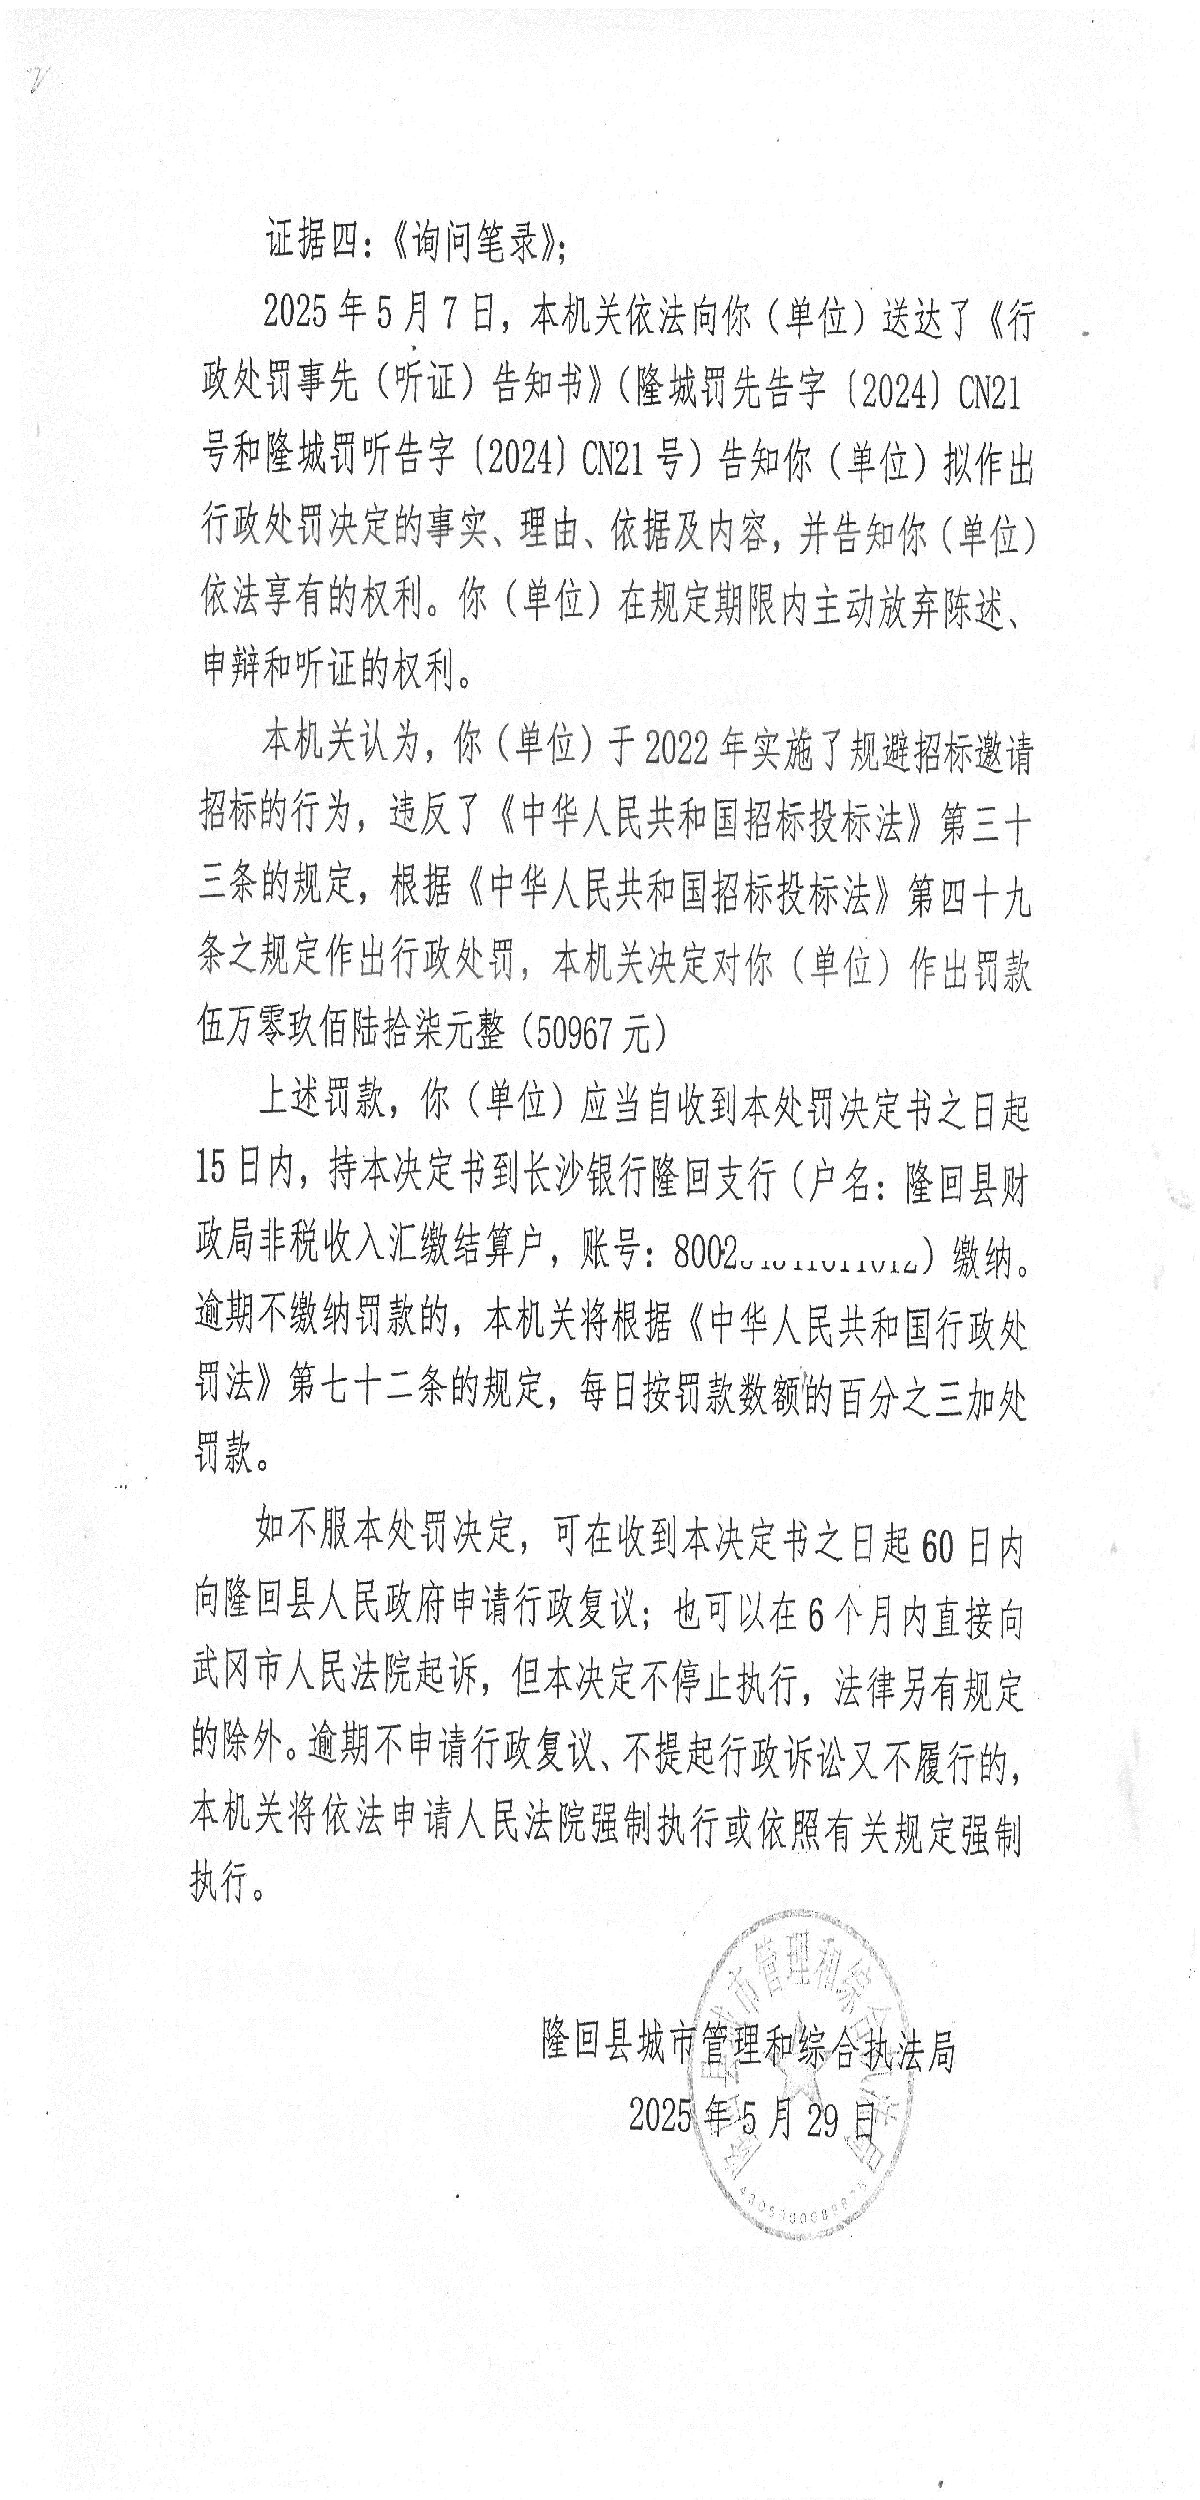 证据四：《询问笔录》；
2025年5月7日，本机关依法向你（单位）送达了《行
政处罚事先（听证）告知书》（隆城罚先告字〔2024〕CN21
号和隆城罚听告字〔2024〕CN21号）告知你（单位）拟作出
行政处罚决定的事实、理由、依据及内容，并告知你（单位）
依法享有的权利。你（单位）在规定期限内主动放弃陈述、
申辩和听证的权利。
本机关认为，你（单位）于2022年实施了规避招标邀请
招标的行为，违反了《中华人民共和国招标投标法》第三十
三条的规定，根据《中华人民共和国招标投标法》第四十九
条之规定作出行政处罚，本机关决定对你（单位）作出罚款
伍万零玖佰陆拾柒元整（50967元）
上述罚款，你（单位）应当自收到本处罚决定书之日起
15日内，持本决定书到长沙银行隆回支行（户名：隆回县财
政局非税收入汇缴结算户，账号：8002）缴纳。
逾期不缴纳罚款的，本机关将根据《中华人民共和国行政处
罚法》第七十二条的规定，每日按罚款数额的百分之三加处
罚款。
如不服本处罚决定，可在收到本决定书之日起60日内
向隆回县人民政府申请行政复议；也可以在6个月内直接向
武冈市人民法院起诉，但本决定不停止执行，法律另有规定
的除外。逾期不申请行政复议、不提起行政诉讼又不履行的，
本机关将依法申请人民法院强制执行或依照有关规定强制
执行。
隆回县城市管理和综合执法局
2025年5月29日